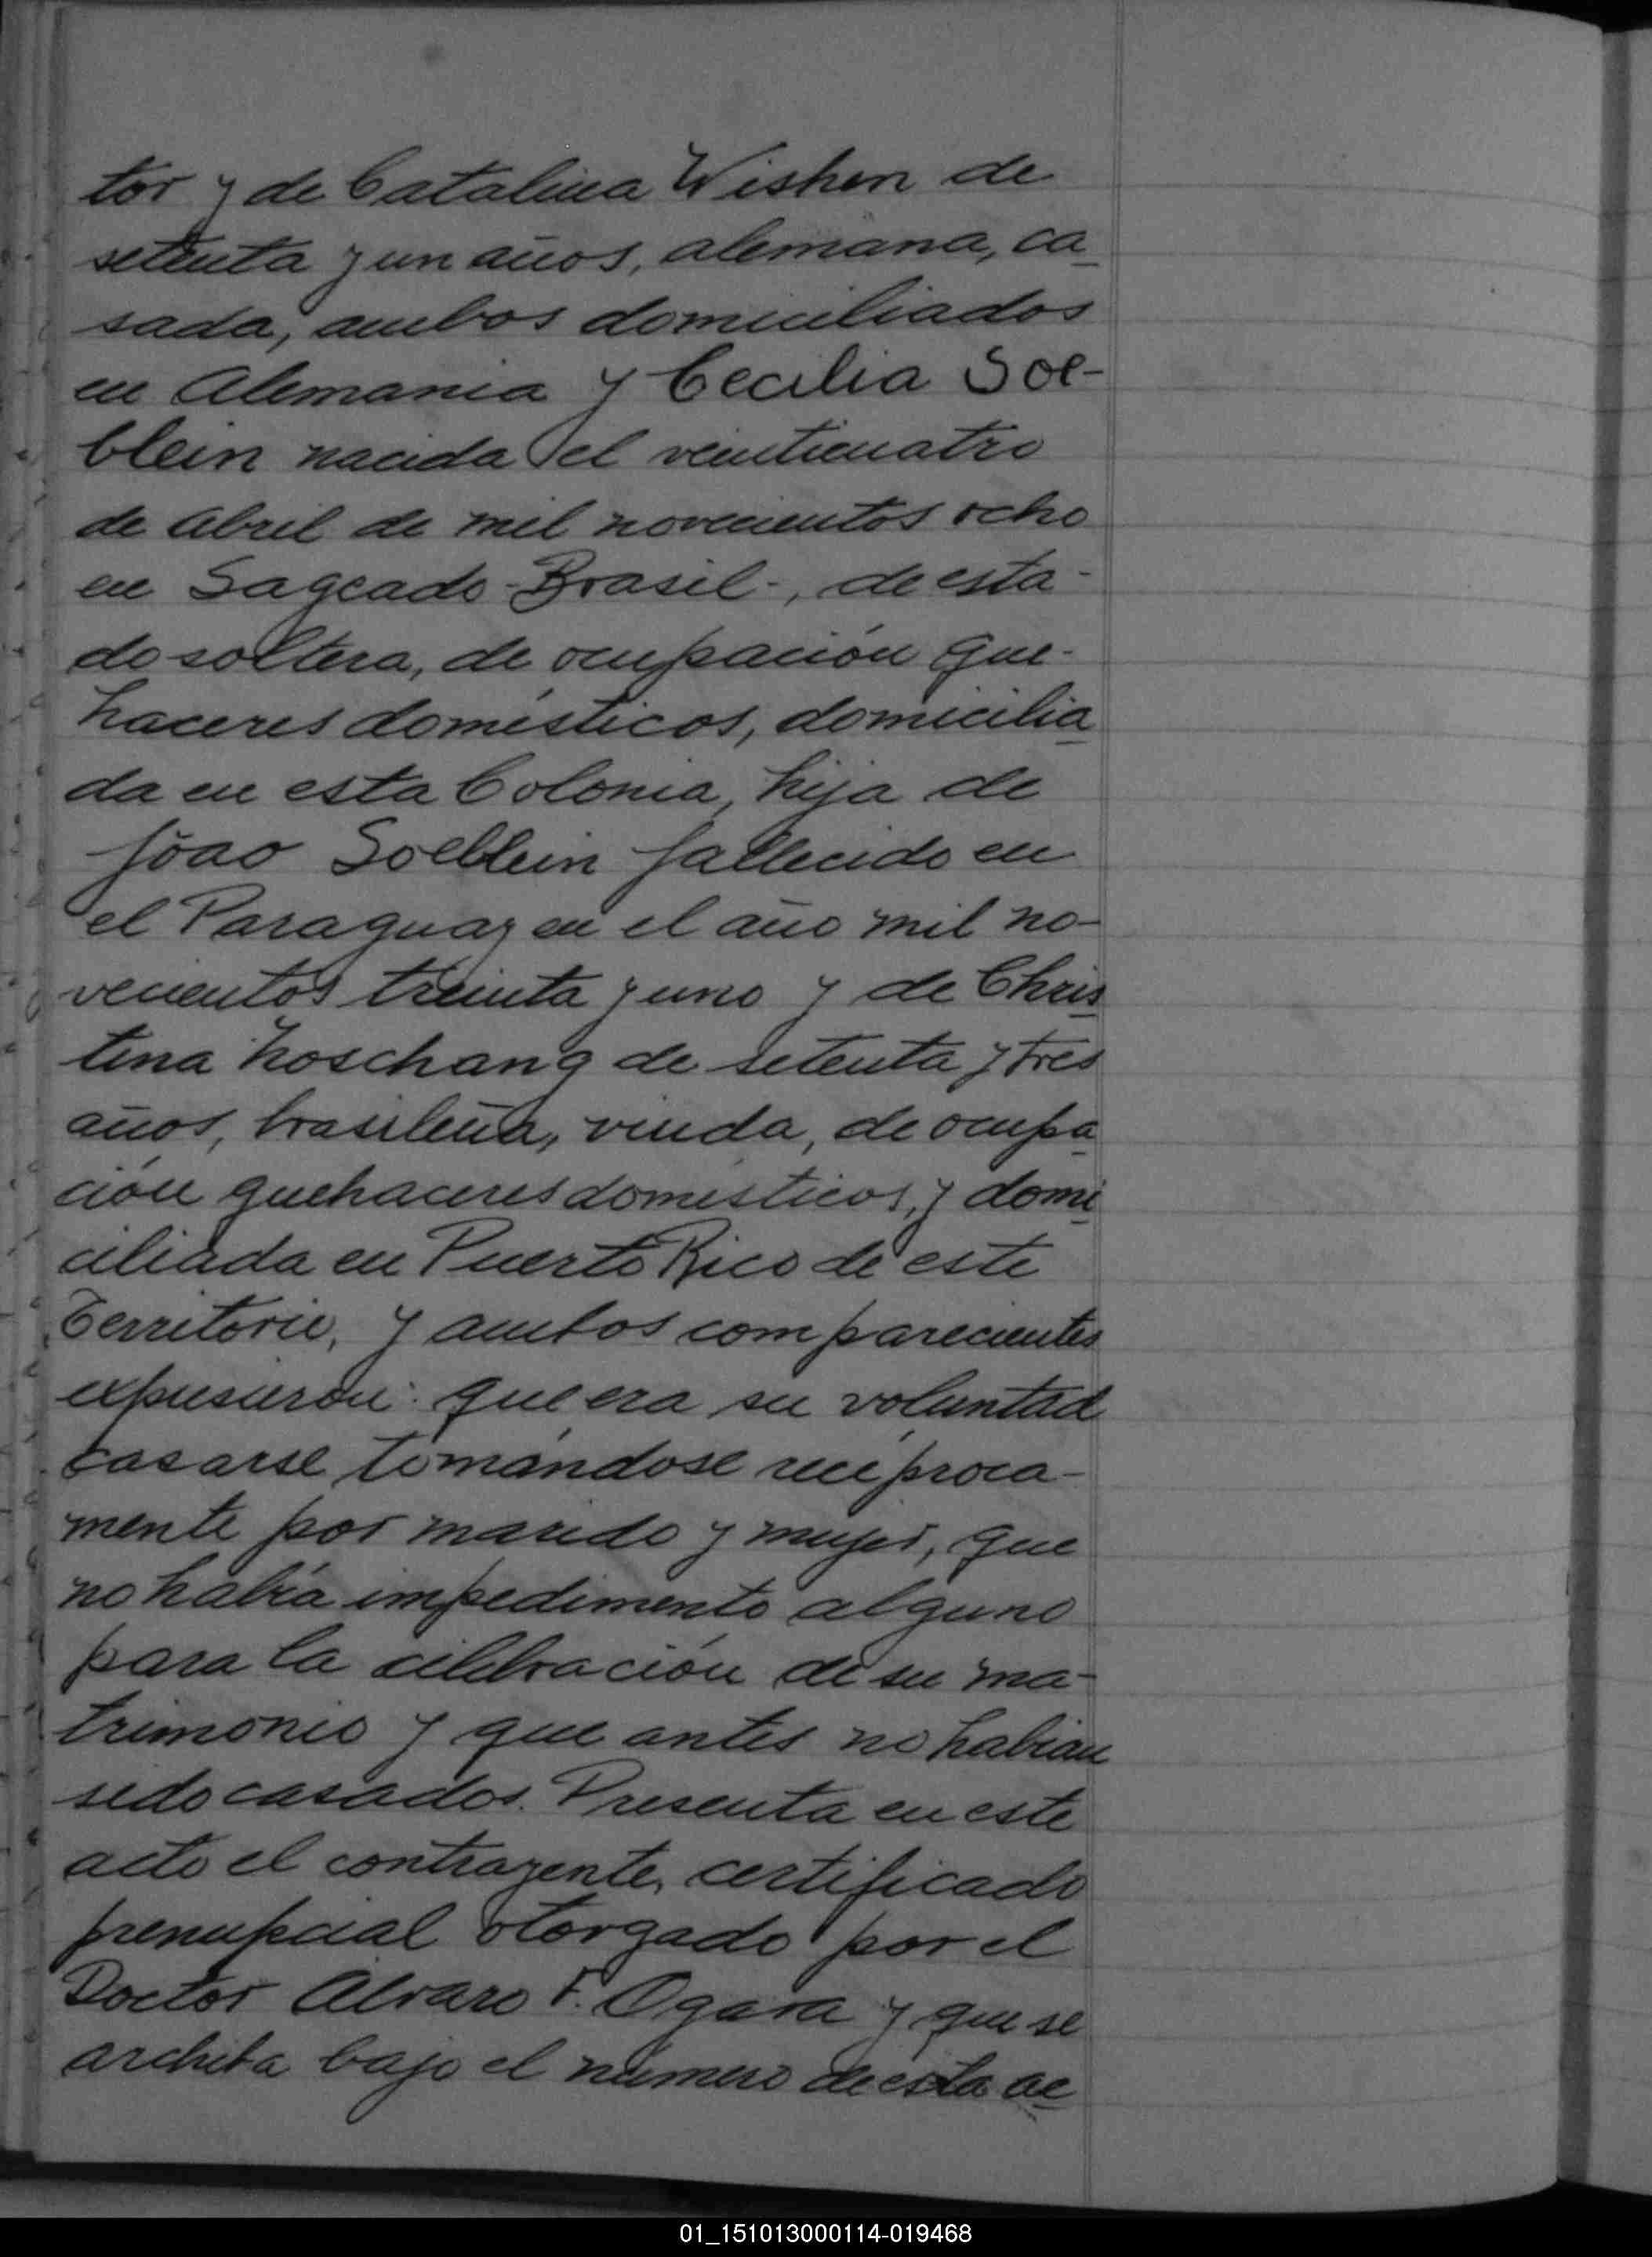 tor y de Catalina Wishen de
setenta y un años, alemana, ca
sada, ambos domiciliados
en Alemania y Cecilia Soe-
blein nacida el veinticuatro
de Abril de mil novecientos ocho
en Lageado-Brasil-, de esta-
do soltera, de ocupación que-
haceres domésticos, domicilia
da en esta Colonia, hija de
Joao Soeblein fallecido en
el Paraguay en el año mil no-
vecientos treinta y uno y de Chris
tina Hoschang de setenta y tres
años, brasileña, viuda, de ocupa
ción quehaceres domésticos, y domi
ciliada en Puerto Rico de este
Territorio, y ambos comparecientes
expusieron: que era su voluntad
casarse tomándose recíproca-
mente por marido y mujer, que
no había impedimento alguno
para la celebración de su ma-
trimonio y que antes no habían
sido casados. Presenta en este
acto el contrayente, certificado
prenupcial otorgado por el
Doctor Alvaro F. Ogara y que se
archiba bajo el número de esta ac
01_151013000114-019468